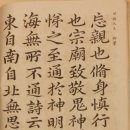 忘親也脩身慎行
也宗廟致敬鬼神
悌之至通於神明
海無所不通詩云
東自南自北無思